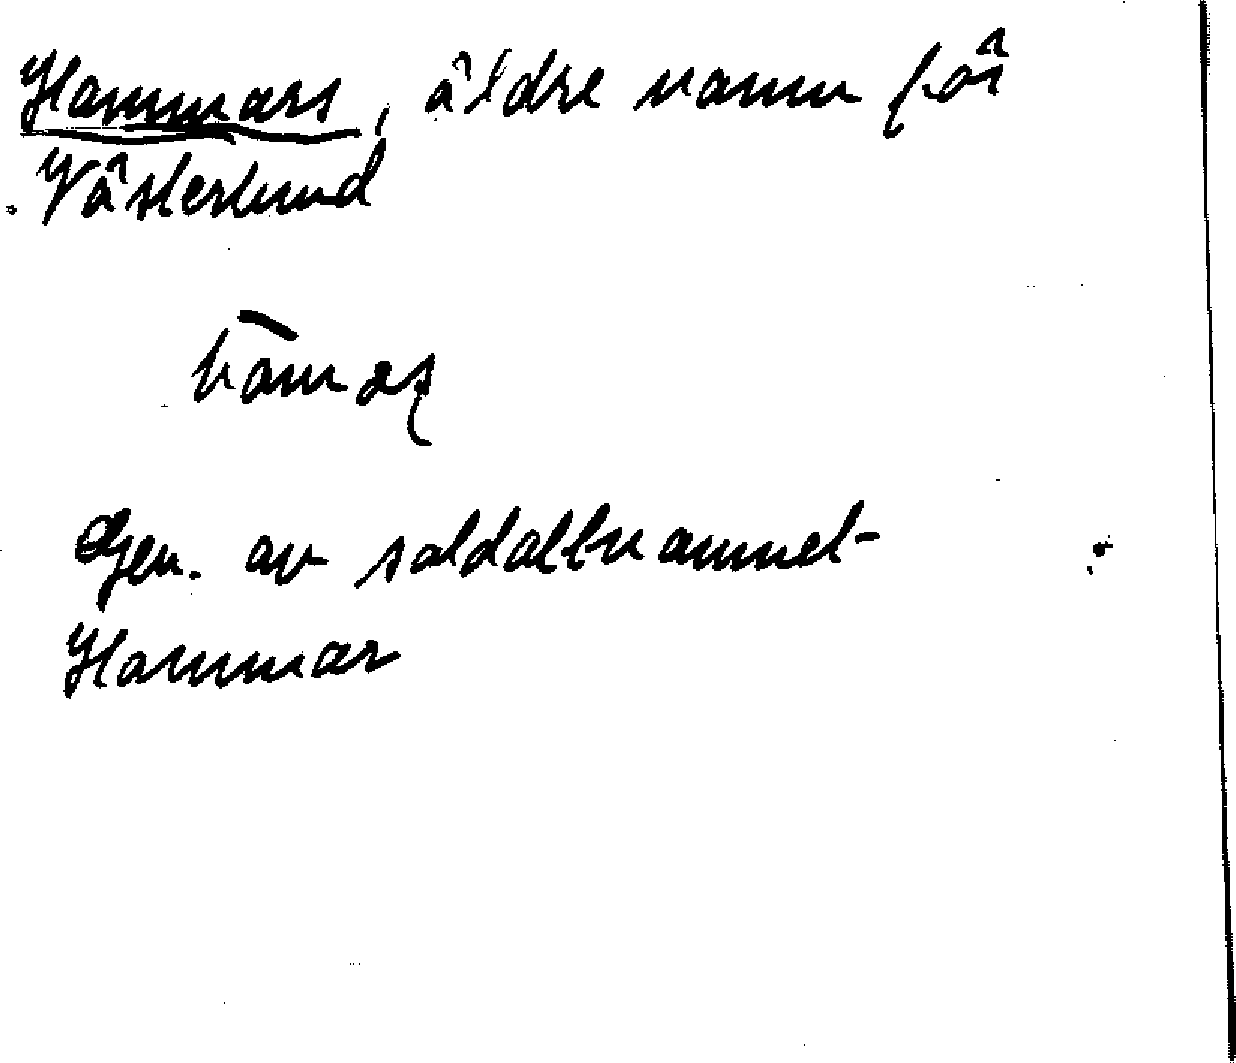 Hammars, äldre namn för
Västerlund
Gen. av soldattnamnet
Hammar